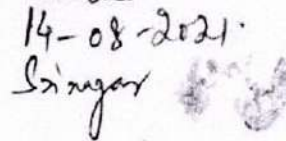 14-08-2021.
Srinagar